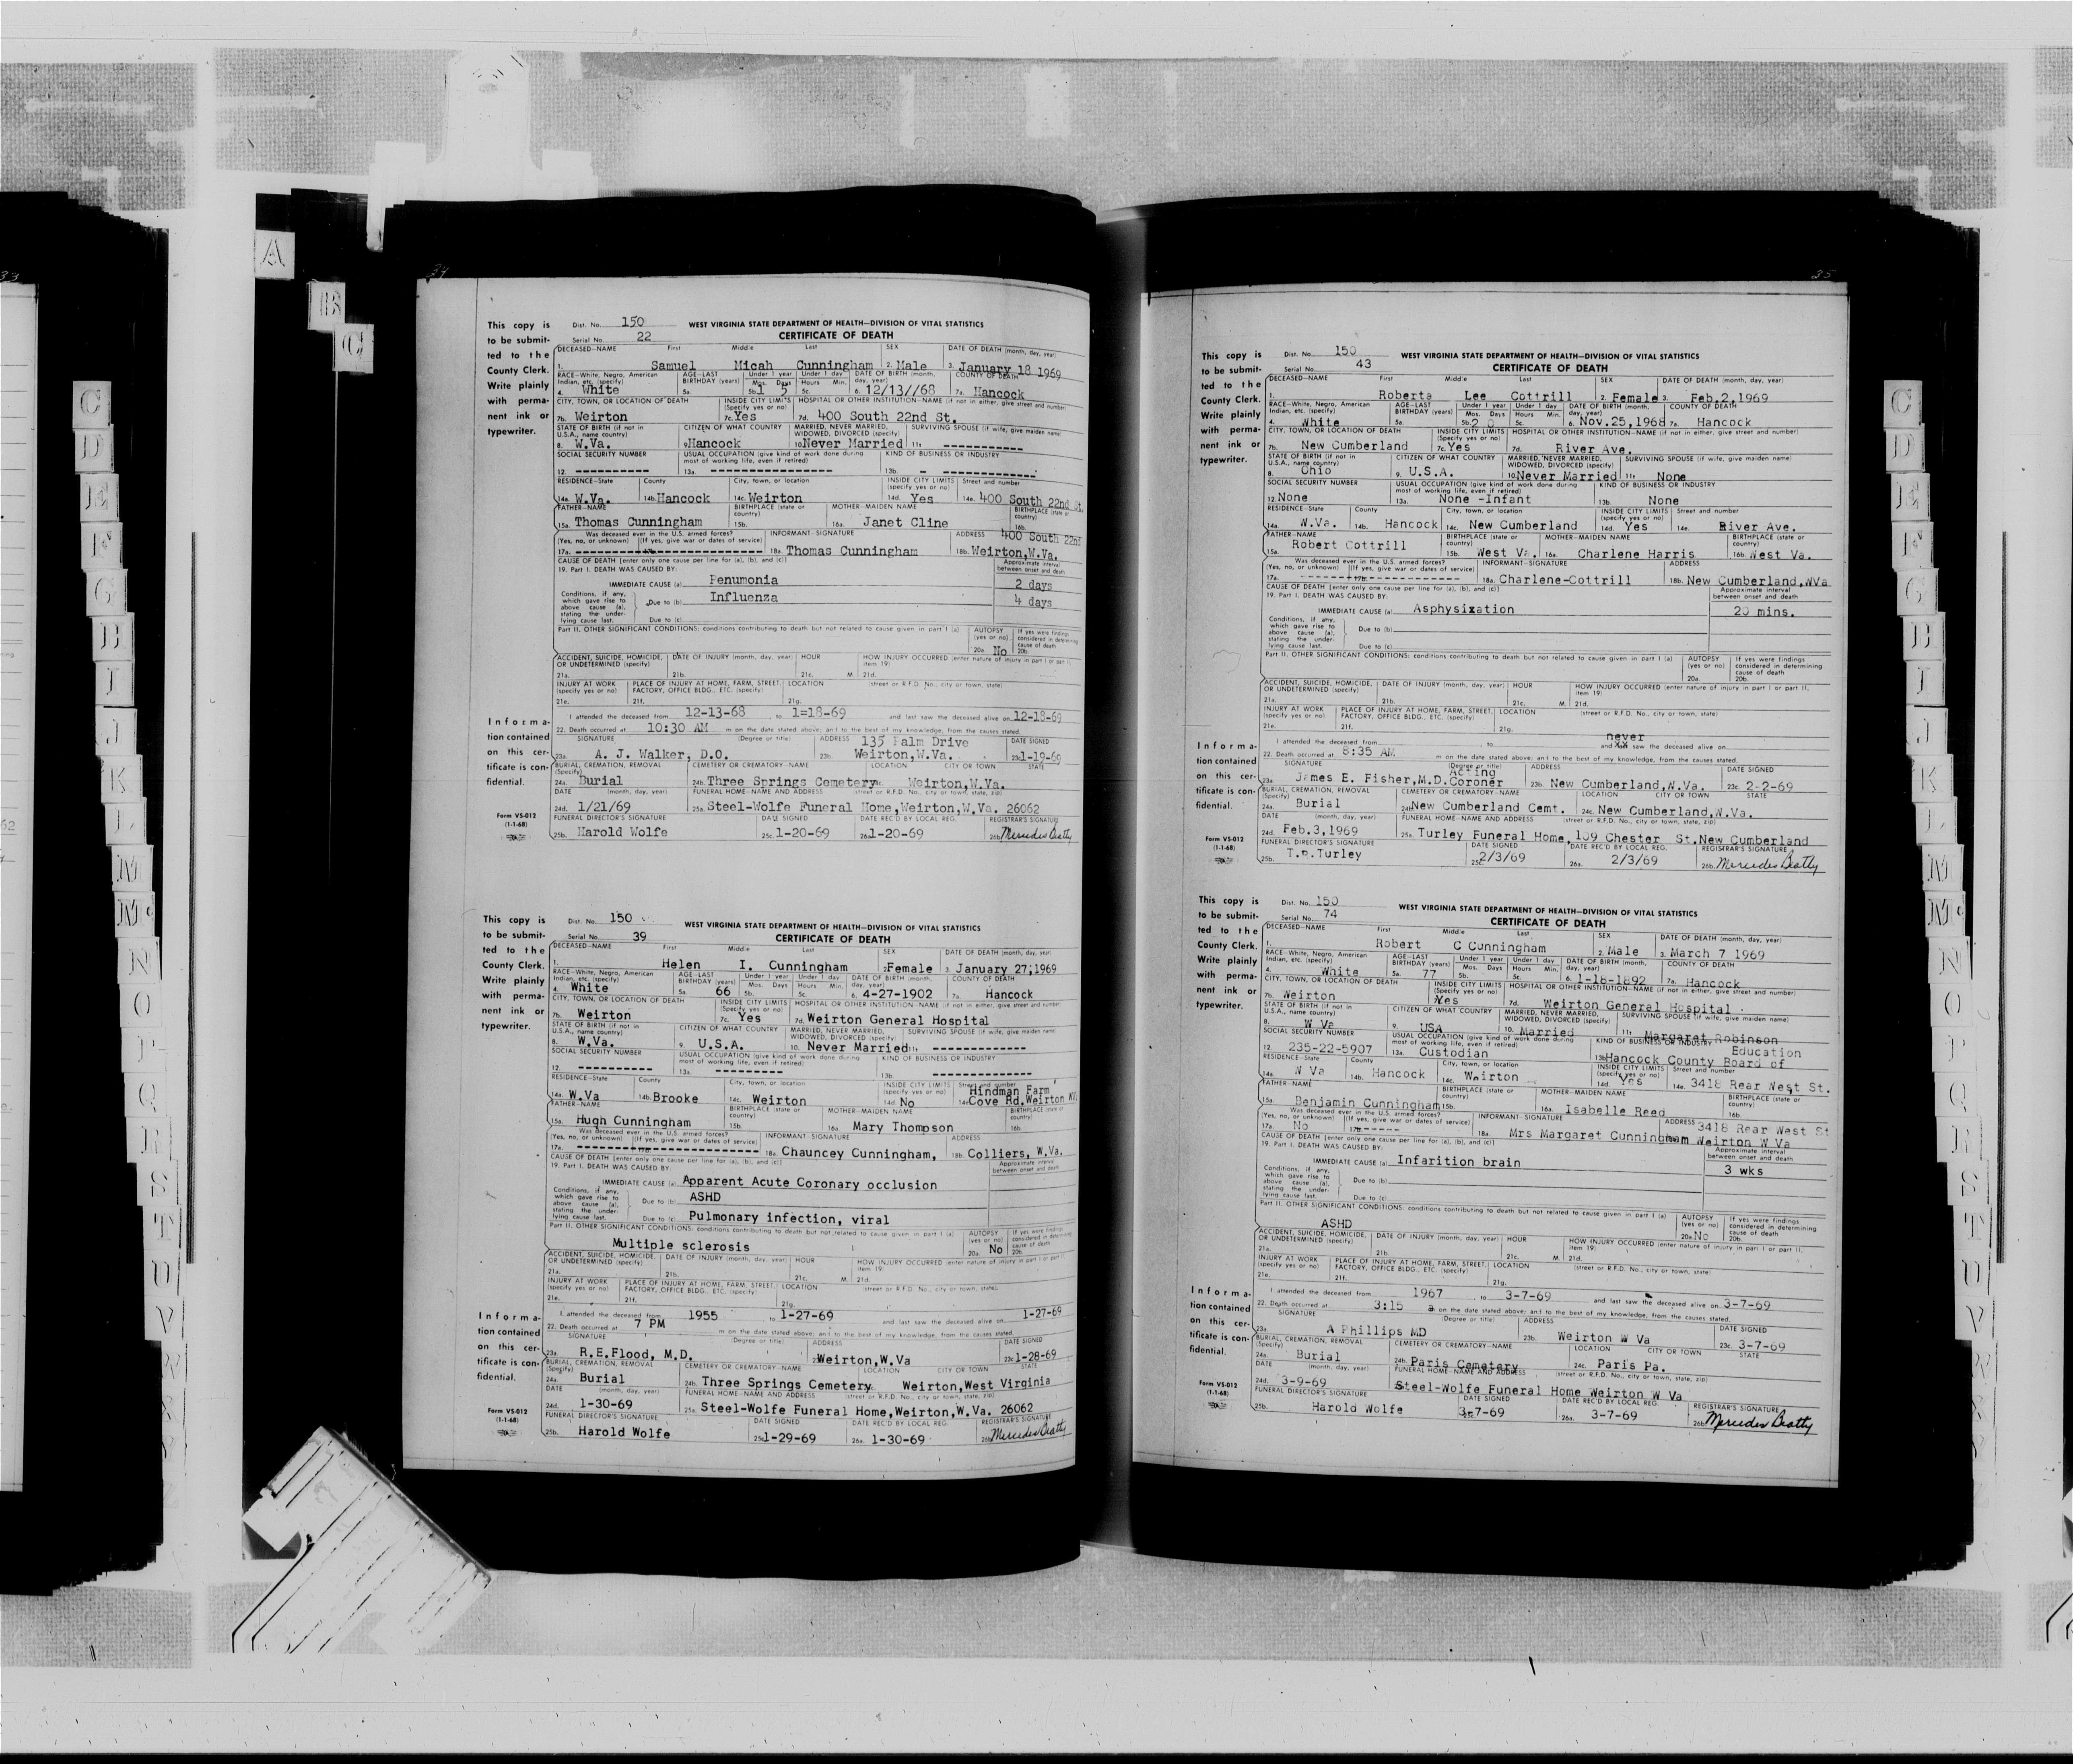 33
34
35
A
B
C
C
D
E
F
G
H
I
J
K
L
M
Mc
N
O
P
Q
R
S
T
U
V
This copy is to be submitted to the County Clerk. Write plainly with permanent ink or typewriter.
Dist. No. 150
Serial No. 22
WEST VIRGINIA STATE DEPARTMENT OF HEALTH—DIVISION OF VITAL STATISTICS
CERTIFICATE OF DEATH
DECEASED-NAME First Middle Last SEX DATE OF DEATH (month, day, year)
1. Samuel Micah Cunningham 2. Male 3. January 18 1969
RACE-White, Negro, American Indian, etc. (specify) AGE-LAST BIRTHDAY (years) Under 1 year Mos. Days Under 1 day Hours Min. DATE OF BIRTH (month, day, year) COUNTY OF DEATH
4. White 5a. 5b. 1 5 5c. 6. 12/13//68 7a. Hancock
CITY, TOWN, OR LOCATION OF DEATH INSIDE CITY LIMITS (Specify yes or no) HOSPITAL OR OTHER INSTITUTION-NAME (if not in either, give street and number)
7b. Weirton 7c. Yes 7d. 400 South 22nd St.
STATE OF BIRTH (if not in U.S.A., name country) CITIZEN OF WHAT COUNTRY MARRIED, NEVER MARRIED, WIDOWED, DIVORCED (specify) SURVIVING SPOUSE (if wife, give maiden name)
8. W.Va. 9. Hancock 10. Never Married 11.
SOCIAL SECURITY NUMBER USUAL OCCUPATION (give kind of work done during most of working life, even if retired) KIND OF BUSINESS OR INDUSTRY
12. 13a. 13b.
RESIDENCE-State County City, town, or location INSIDE CITY LIMITS (specify yes or no) Street and number
14a. W.Va. 14b. Hancock 14c. Weirton 14d. Yes 14e. 400 South 22nd St.
FATHER-NAME BIRTHPLACE (state or country) MOTHER-MAIDEN NAME BIRTHPLACE (state or country)
15a. Thomas Cunningham 15b. 16a. Janet Cline 16b.
Was deceased ever in the U.S. armed forces? (Yes, no, or unknown) (If yes, give war or dates of service) INFORMANT-SIGNATURE ADDRESS 400 South 22nd
17a. 17b. 18a. Thomas Cunningham 18b. Weirton,W.Va.
CAUSE OF DEATH [enter only one cause per line for (a), (b), and (c)] Approximate interval between onset and death
19. Part I. DEATH WAS CAUSED BY:
IMMEDIATE CAUSE (a) Penumonia 2 days
Conditions, if any, which gave rise to above cause (a), stating the underlying cause last. Due to (b) Influenza 4 days
Due to (c)
Part II. OTHER SIGNIFICANT CONDITIONS: conditions contributing to death but not related to cause given in part I (a) AUTOPSY (yes or no) If yes were findings considered in determining cause of death
20a. No 20b.
ACCIDENT, SUICIDE, HOMICIDE, OR UNDETERMINED (specify) DATE OF INJURY (month, day, year) HOUR HOW INJURY OCCURRED (enter nature of injury in part I or part II, item 19)
21a. 21b. 21c. M. 21d.
INJURY AT WORK (specify yes or no) PLACE OF INJURY AT HOME, FARM, STREET, FACTORY, OFFICE BLDG., ETC. (specify) LOCATION (street or R.F.D. No., city or town, state)
21e. 21f. 21g.
Information contained on this certificate is confidential.
I attended the deceased from 12-13-68 to 1=18-69 and last saw the deceased alive on 12-18-69
22. Death occurred at 10:30 AM m on the date stated above; and to the best of my knowledge, from the causes stated.
SIGNATURE (Degree or title) ADDRESS 135 Palm Drive DATE SIGNED
23a. A. J. Walker, D.O. 23b. Weirton,W.Va. 23c. 1-19-69
BURIAL, CREMATION, REMOVAL (Specify) CEMETERY OR CREMATORY-NAME LOCATION CITY OR TOWN STATE
24a. Burial 24b. Three Springs Cemetery 24c. Weirton,W.Va.
DATE (month, day, year) FUNERAL HOME-NAME AND ADDRESS (street or R.F.D. No., city or town, state, zip)
24d. 1/21/69 25a. Steel-Wolfe Funeral Home,Weirton,W.Va. 26062
FUNERAL DIRECTOR'S SIGNATURE DATE SIGNED DATE REC'D BY LOCAL REG. REGISTRAR'S SIGNATURE
25b. Harold Wolfe 25c. 1-20-69 26a. 1-20-69 26b. Mercedes Beatty
Form VS-012
(1-1-68)
This copy is to be submitted to the County Clerk. Write plainly with permanent ink or typewriter.
Dist. No. 150
Serial No. 39
WEST VIRGINIA STATE DEPARTMENT OF HEALTH—DIVISION OF VITAL STATISTICS
CERTIFICATE OF DEATH
DECEASED-NAME First Middle Last SEX DATE OF DEATH (month, day, year)
1. Helen I. Cunningham 2. Female 3. January 27,1969
RACE-White, Negro, American Indian, etc. (specify) AGE-LAST BIRTHDAY (years) Under 1 year Mos. Days Under 1 day Hours Min. DATE OF BIRTH (month, day, year) COUNTY OF DEATH
4. White 5a. 66 5b. 5c. 6. 4-27-1902 7a. Hancock
CITY, TOWN, OR LOCATION OF DEATH INSIDE CITY LIMITS (Specify yes or no) HOSPITAL OR OTHER INSTITUTION-NAME (if not in either, give street and number)
7b. Weirton 7c. Yes 7d. Weirton General Hospital
STATE OF BIRTH (if not in U.S.A., name country) CITIZEN OF WHAT COUNTRY MARRIED, NEVER MARRIED, WIDOWED, DIVORCED (specify) SURVIVING SPOUSE (if wife, give maiden name)
8. W.Va. 9. U.S.A. 10. Never Married 11.
SOCIAL SECURITY NUMBER USUAL OCCUPATION (give kind of work done during most of working life, even if retired) KIND OF BUSINESS OR INDUSTRY
12. 13a. 13b.
RESIDENCE-State County City, town, or location INSIDE CITY LIMITS (specify yes or no) Street and number Hindman Farm
14a. W.Va 14b. Brooke 14c. Weirton 14d. No 14e. Cove Rd,Weirton WV
FATHER-NAME BIRTHPLACE (state or country) MOTHER-MAIDEN NAME BIRTHPLACE (state or country)
15a. Hugh Cunningham 15b. 16a. Mary Thompson 16b.
Was deceased ever in the U.S. armed forces? (Yes, no, or unknown) (If yes, give war or dates of service) INFORMANT-SIGNATURE ADDRESS
17a. 17b. 18a. Chauncey Cunningham, 18b. Colliers, W.Va.
CAUSE OF DEATH [enter only one cause per line for (a), (b), and (c)] Approximate interval between onset and death
19. Part I. DEATH WAS CAUSED BY:
IMMEDIATE CAUSE (a) Apparent Acute Coronary occlusion
Conditions, if any, which gave rise to above cause (a), stating the underlying cause last. Due to (b) ASHD
Due to (c) Pulmonary infection, viral
Part II. OTHER SIGNIFICANT CONDITIONS: conditions contributing to death but not related to cause given in part I (a) AUTOPSY (yes or no) If yes were findings considered in determining cause of death
Multiple sclerosis 20a. No 20b.
ACCIDENT, SUICIDE, HOMICIDE, OR UNDETERMINED (specify) DATE OF INJURY (month, day, year) HOUR HOW INJURY OCCURRED (enter nature of injury in part I or part II, item 19)
21a. 21b. 21c. M. 21d.
INJURY AT WORK (specify yes or no) PLACE OF INJURY AT HOME, FARM, STREET, FACTORY, OFFICE BLDG., ETC. (specify) LOCATION (street or R.F.D. No., city or town, state)
21e. 21f. 21g.
Information contained on this certificate is confidential.
I attended the deceased from 1955 to 1-27-69 and last saw the deceased alive on 1-27-69
22. Death occurred at 7 PM m on the date stated above; and to the best of my knowledge, from the causes stated.
SIGNATURE (Degree or title) ADDRESS DATE SIGNED
23a. R.E.Flood, M.D. Weirton,W.Va 23c. 1-28-69
BURIAL, CREMATION, REMOVAL (Specify) CEMETERY OR CREMATORY-NAME LOCATION CITY OR TOWN STATE
24a. Burial 24b. Three Springs Cemetery Weirton,West Virginia
DATE (month, day, year) FUNERAL HOME-NAME AND ADDRESS (street or R.F.D. No., city or town, state, zip)
24d. 1-30-69 25a. Steel-Wolfe Funeral Home,Weirton,W.Va. 26062
FUNERAL DIRECTOR'S SIGNATURE DATE SIGNED DATE REC'D BY LOCAL REG. REGISTRAR'S SIGNATURE
25b. Harold Wolfe 25c. 1-29-69 26a. 1-30-69 26b. Mercedes Beatty
Form VS-012
(1-1-68)
This copy is to be submitted to the County Clerk. Write plainly with permanent ink or typewriter.
Dist. No. 150
Serial No. 43
WEST VIRGINIA STATE DEPARTMENT OF HEALTH—DIVISION OF VITAL STATISTICS
CERTIFICATE OF DEATH
DECEASED-NAME First Middle Last SEX DATE OF DEATH (month, day, year)
1. Roberta Lee Cottrill 2. Female 3. Feb.2,1969
RACE-White, Negro, American Indian, etc. (specify) AGE-LAST BIRTHDAY (years) Under 1 year Mos. Days Under 1 day Hours Min. DATE OF BIRTH (month, day, year) COUNTY OF DEATH
4. White 5a. 5b. 2 5c. 6. Nov.25,1968 7a. Hancock
CITY, TOWN, OR LOCATION OF DEATH INSIDE CITY LIMITS (Specify yes or no) HOSPITAL OR OTHER INSTITUTION-NAME (if not in either, give street and number)
7b. New Cumberland 7c. Yes 7d. River Ave.
STATE OF BIRTH (if not in U.S.A., name country) CITIZEN OF WHAT COUNTRY MARRIED, NEVER MARRIED, WIDOWED, DIVORCED (specify) SURVIVING SPOUSE (if wife, give maiden name)
8. Ohio 9. U.S.A. 10. Never Married 11. None
SOCIAL SECURITY NUMBER USUAL OCCUPATION (give kind of work done during most of working life, even if retired) KIND OF BUSINESS OR INDUSTRY
12. None 13a. None -Infant 13b. None
RESIDENCE-State County City, town, or location INSIDE CITY LIMITS (specify yes or no) Street and number
14a. W.Va. 14b. Hancock 14c. New Cumberland 14d. Yes 14e. River Ave.
FATHER-NAME BIRTHPLACE (state or country) MOTHER-MAIDEN NAME BIRTHPLACE (state or country)
15a. Robert Cottrill 15b. West Va. 16a. Charlene Harris 16b. West Va.
Was deceased ever in the U.S. armed forces? (Yes, no, or unknown) (If yes, give war or dates of service) INFORMANT-SIGNATURE ADDRESS
17a. 17b. 18a. Charlene-Cottrill 18b. New Cumberland,WVa
CAUSE OF DEATH [enter only one cause per line for (a), (b), and (c)] Approximate interval between onset and death
19. Part I. DEATH WAS CAUSED BY:
IMMEDIATE CAUSE (a) Asphysixation 20 mins.
Conditions, if any, which gave rise to above cause (a), stating the underlying cause last. Due to (b)
Due to (c)
Part II. OTHER SIGNIFICANT CONDITIONS: conditions contributing to death but not related to cause given in part I (a) AUTOPSY (yes or no) If yes were findings considered in determining cause of death
20a. 20b.
ACCIDENT, SUICIDE, HOMICIDE, OR UNDETERMINED (specify) DATE OF INJURY (month, day, year) HOUR HOW INJURY OCCURRED (enter nature of injury in part I or part II, item 19)
21a. 21b. 21c. M. 21d.
INJURY AT WORK (specify yes or no) PLACE OF INJURY AT HOME, FARM, STREET, FACTORY, OFFICE BLDG., ETC. (specify) LOCATION (street or R.F.D. No., city or town, state)
21e. 21f. 21g.
Information contained on this certificate is confidential.
never
I attended the deceased from to and saw the deceased alive on
22. Death occurred at 8:35 AM m on the date stated above; and to the best of my knowledge, from the causes stated.
SIGNATURE (Degree or title) Acting ADDRESS DATE SIGNED
23a. James E. Fisher,M.D.Coroner 23b. New Cumberland,W.Va. 23c. 2-2-69
BURIAL, CREMATION, REMOVAL (Specify) CEMETERY OR CREMATORY-NAME LOCATION CITY OR TOWN STATE
24a. Burial 24b. New Cumberland Cemt. 24c. New Cumberland,W.Va.
DATE (month, day, year) FUNERAL HOME-NAME AND ADDRESS (street or R.F.D. No., city or town, state, zip)
24d. Feb.3,1969 25a. Turley Funeral Home,109 Chester St.New Cumberland
FUNERAL DIRECTOR'S SIGNATURE DATE SIGNED DATE REC'D BY LOCAL REG. REGISTRAR'S SIGNATURE
25b. T.R.Turley 25c. 2/3/69 26a. 2/3/69 26b. Mercedes Beatty
Form VS-012
(1-1-68)
This copy is to be submitted to the County Clerk. Write plainly with permanent ink or typewriter.
Dist. No. 150
Serial No. 74
WEST VIRGINIA STATE DEPARTMENT OF HEALTH—DIVISION OF VITAL STATISTICS
CERTIFICATE OF DEATH
DECEASED-NAME First Middle Last SEX DATE OF DEATH (month, day, year)
1. Robert C Cunningham 2. Male 3. March 7 1969
RACE-White, Negro, American Indian, etc. (specify) AGE-LAST BIRTHDAY (years) Under 1 year Mos. Days Under 1 day Hours Min. DATE OF BIRTH (month, day, year) COUNTY OF DEATH
4. White 5a. 77 5b. 5c. 6. 1-18-1892 7a. Hancock
CITY, TOWN, OR LOCATION OF DEATH INSIDE CITY LIMITS (Specify yes or no) HOSPITAL OR OTHER INSTITUTION-NAME (if not in either, give street and number)
7b. Weirton Yes 7d. Weirton General Hospital
STATE OF BIRTH (if not in U.S.A., name country) CITIZEN OF WHAT COUNTRY MARRIED, NEVER MARRIED, WIDOWED, DIVORCED (specify) SURVIVING SPOUSE (if wife, give maiden name)
8. W Va 9. USA 10. Married 11. Margaret Robinson
SOCIAL SECURITY NUMBER USUAL OCCUPATION (give kind of work done during most of working life, even if retired) KIND OF BUSINESS OR INDUSTRY Education
12. 235-22-5907 13a. Custodian 13b. Hancock County Board of
RESIDENCE-State County City, town, or location INSIDE CITY LIMITS (specify yes or no) Street and number
14a. W Va 14b. Hancock 14c. Weirton 14d. Yes 14e. 3418 Rear West St.
FATHER-NAME BIRTHPLACE (state or country) MOTHER-MAIDEN NAME BIRTHPLACE (state or country)
15a. Benjamin Cunningham 15b. 16a. Isabelle Reed 16b.
Was deceased ever in the U.S. armed forces? (Yes, no, or unknown) (If yes, give war or dates of service) INFORMANT-SIGNATURE ADDRESS 3418 Rear West St
17a. No 17b. 18a. Mrs Margaret Cunningham Weirton W Va
CAUSE OF DEATH [enter only one cause per line for (a), (b), and (c)] Approximate interval between onset and death
19. Part I. DEATH WAS CAUSED BY:
IMMEDIATE CAUSE (a) Infarition brain 3 wks
Conditions, if any, which gave rise to above cause (a), stating the underlying cause last. Due to (b)
Due to (c)
Part II. OTHER SIGNIFICANT CONDITIONS: conditions contributing to death but not related to cause given in part I (a) AUTOPSY (yes or no) If yes were findings considered in determining cause of death
ASHD 20a. No 20b.
ACCIDENT, SUICIDE, HOMICIDE, OR UNDETERMINED (specify) DATE OF INJURY (month, day, year) HOUR HOW INJURY OCCURRED (enter nature of injury in part I or part II, item 19)
21a. 21b. 21c. M. 21d.
INJURY AT WORK (specify yes or no) PLACE OF INJURY AT HOME, FARM, STREET, FACTORY, OFFICE BLDG., ETC. (specify) LOCATION (street or R.F.D. No., city or town, state)
21e. 21f. 21g.
Information contained on this certificate is confidential.
I attended the deceased from 1967 to 3-7-69 and last saw the deceased alive on 3-7-69
22. Death occurred at 3:15 a on the date stated above; and to the best of my knowledge, from the causes stated.
SIGNATURE (Degree or title) ADDRESS DATE SIGNED
23a. A Phillips MD 23b. Weirton W Va 23c. 3-7-69
BURIAL, CREMATION, REMOVAL (Specify) CEMETERY OR CREMATORY-NAME LOCATION CITY OR TOWN STATE
24a. Burial 24b. Paris Cemetery 24c. Paris Pa.
DATE (month, day, year) FUNERAL HOME-NAME AND ADDRESS (street or R.F.D. No., city or town, state, zip)
24d. 3-9-69 Steel-Wolfe Funeral Home Weirton W Va
FUNERAL DIRECTOR'S SIGNATURE DATE SIGNED DATE REC'D BY LOCAL REG. REGISTRAR'S SIGNATURE
25b. Harold Wolfe 3-7-69 26a. 3-7-69 26b. Mercedes Beatty
Form VS-012
(1-1-68)